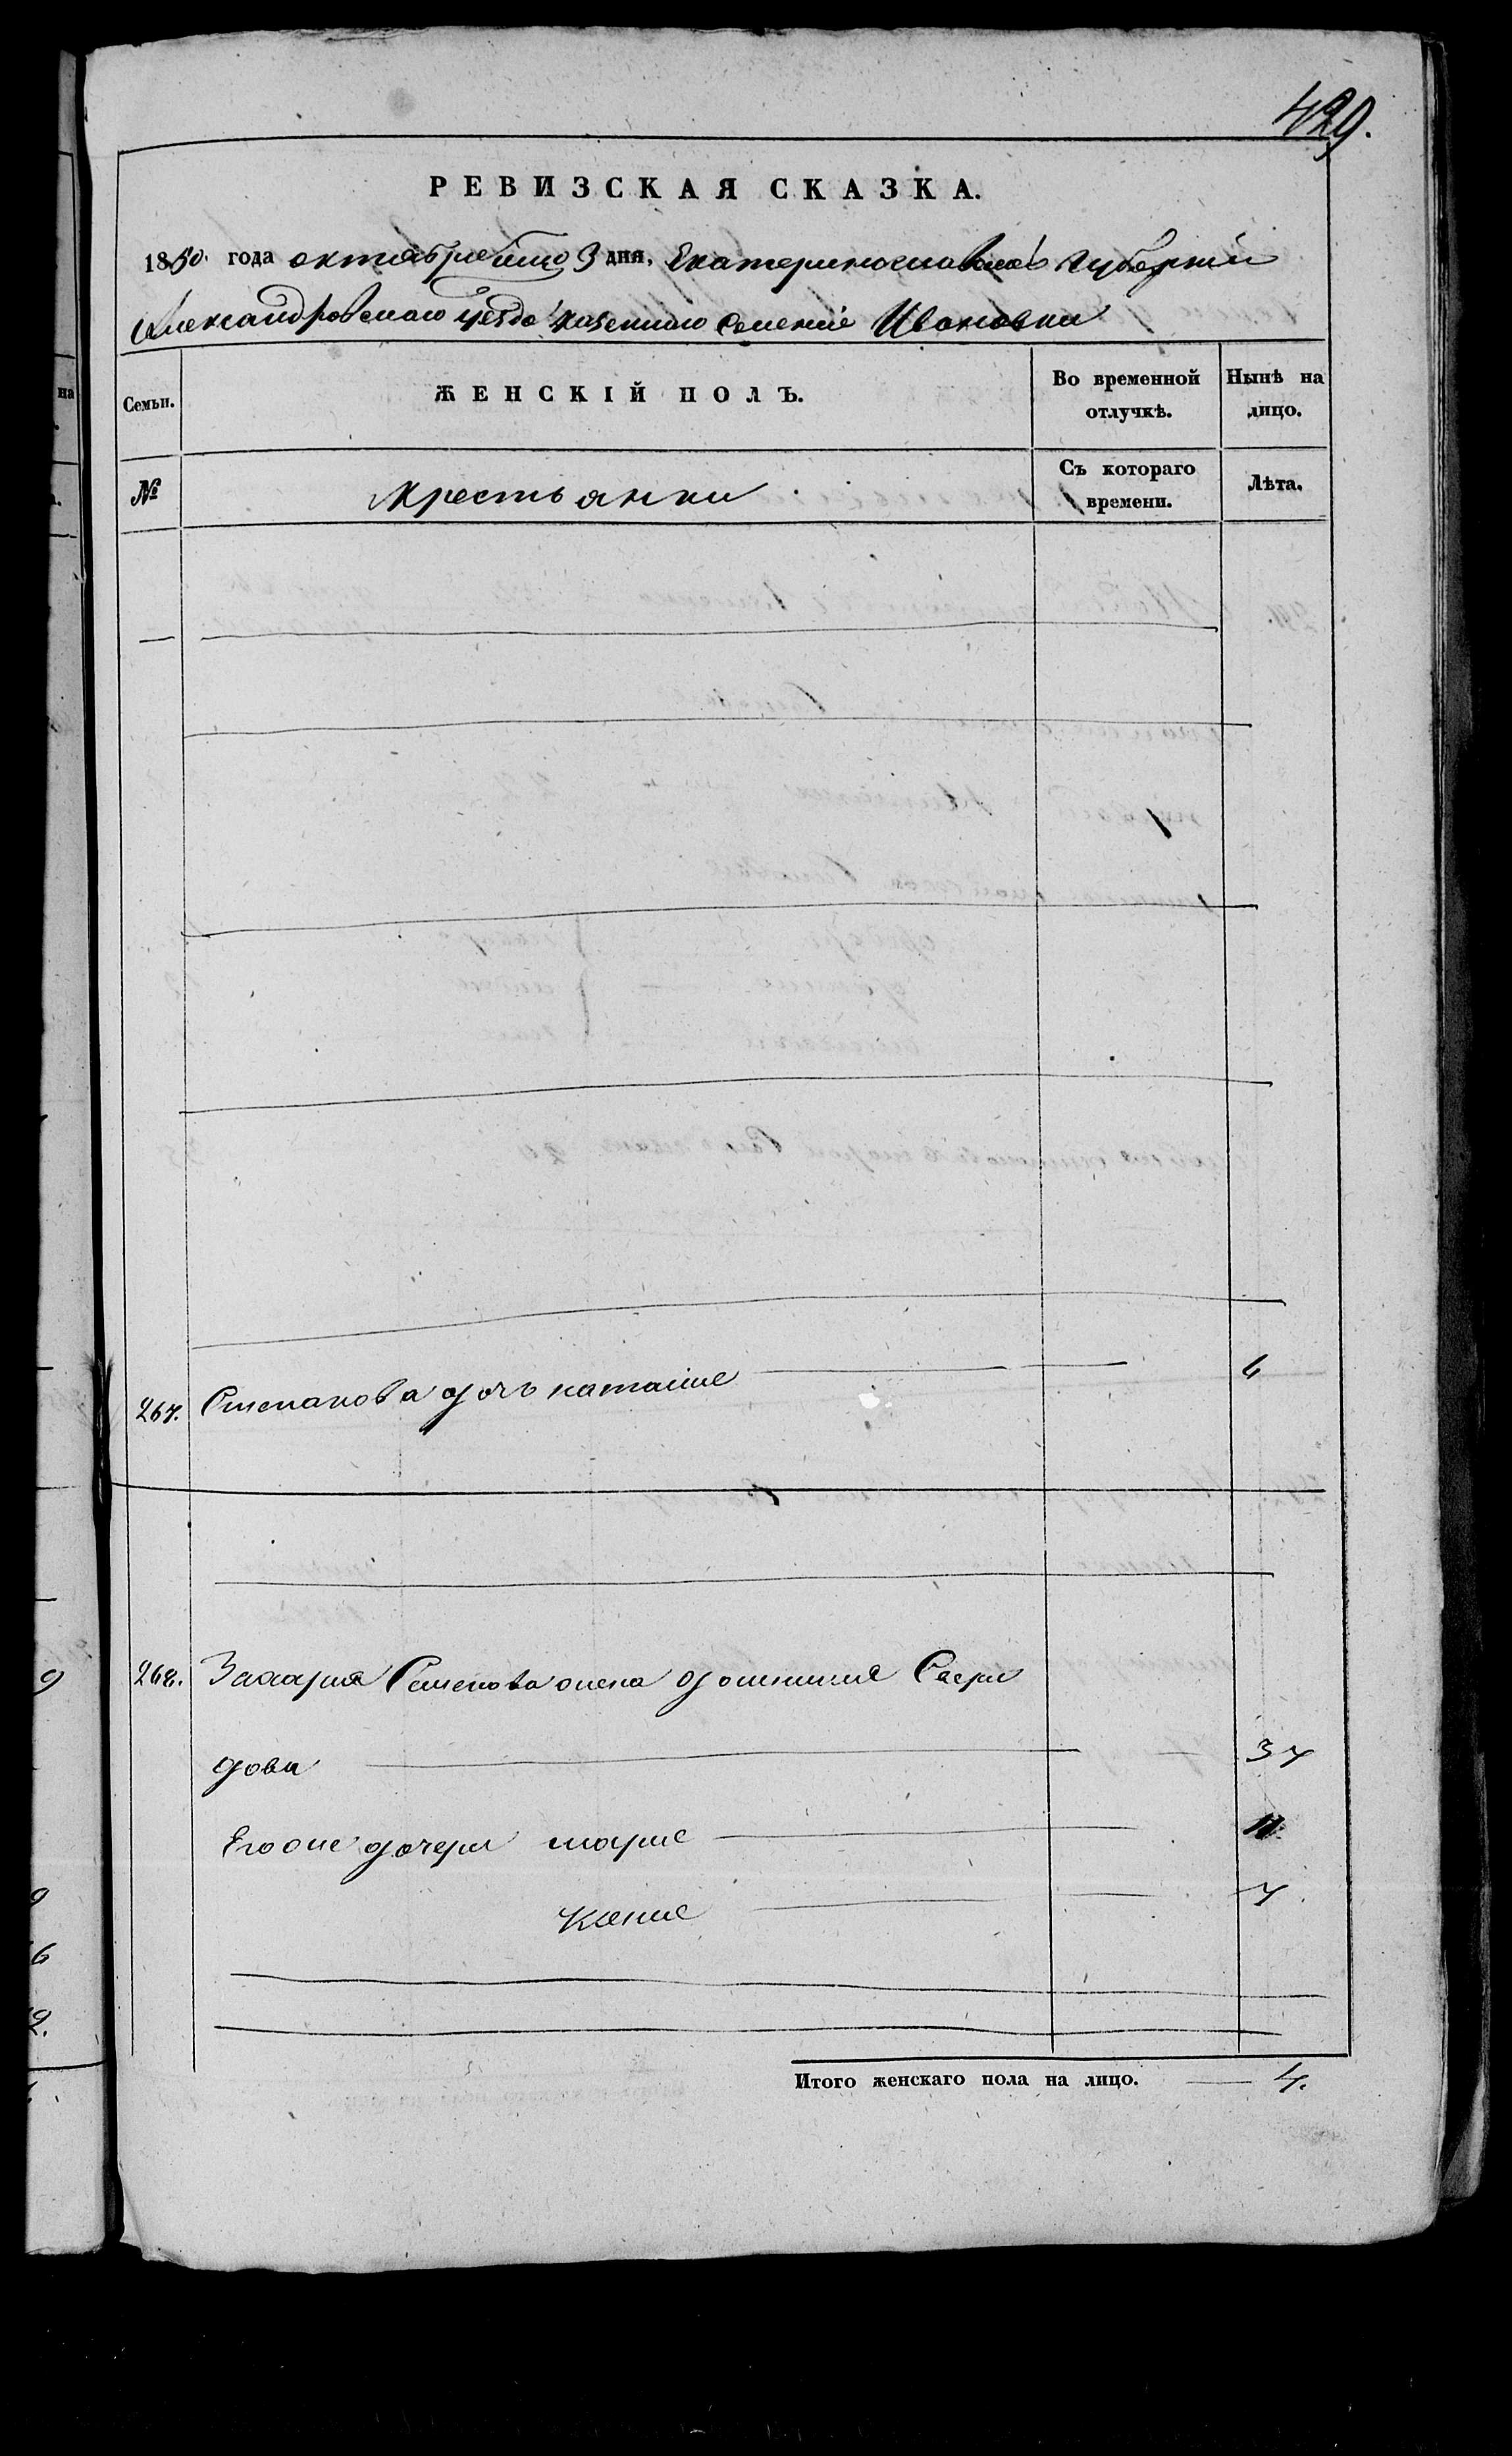 429.
РЕВИЗСКАЯ СКАЗКА.
1850. года октября 3 дня, Екатеринославской губернии
Александровского уезда казенного селения Ивановки
Семьи.
ЖЕНСКІЙ ПОЛЪ.
Во временной отлучкѣ.
Нынѣ на лицо.
№
крестьянки
Съ котораго времени.
Лѣта.
267. Степанова дочь наталие 6
268. Захария Семенова жена домникия Свери
дова 37
Его же дочери марие 11.
Ксение 7.
Итого женскаго пола на лицо. 4.
на
9
9
6
2.